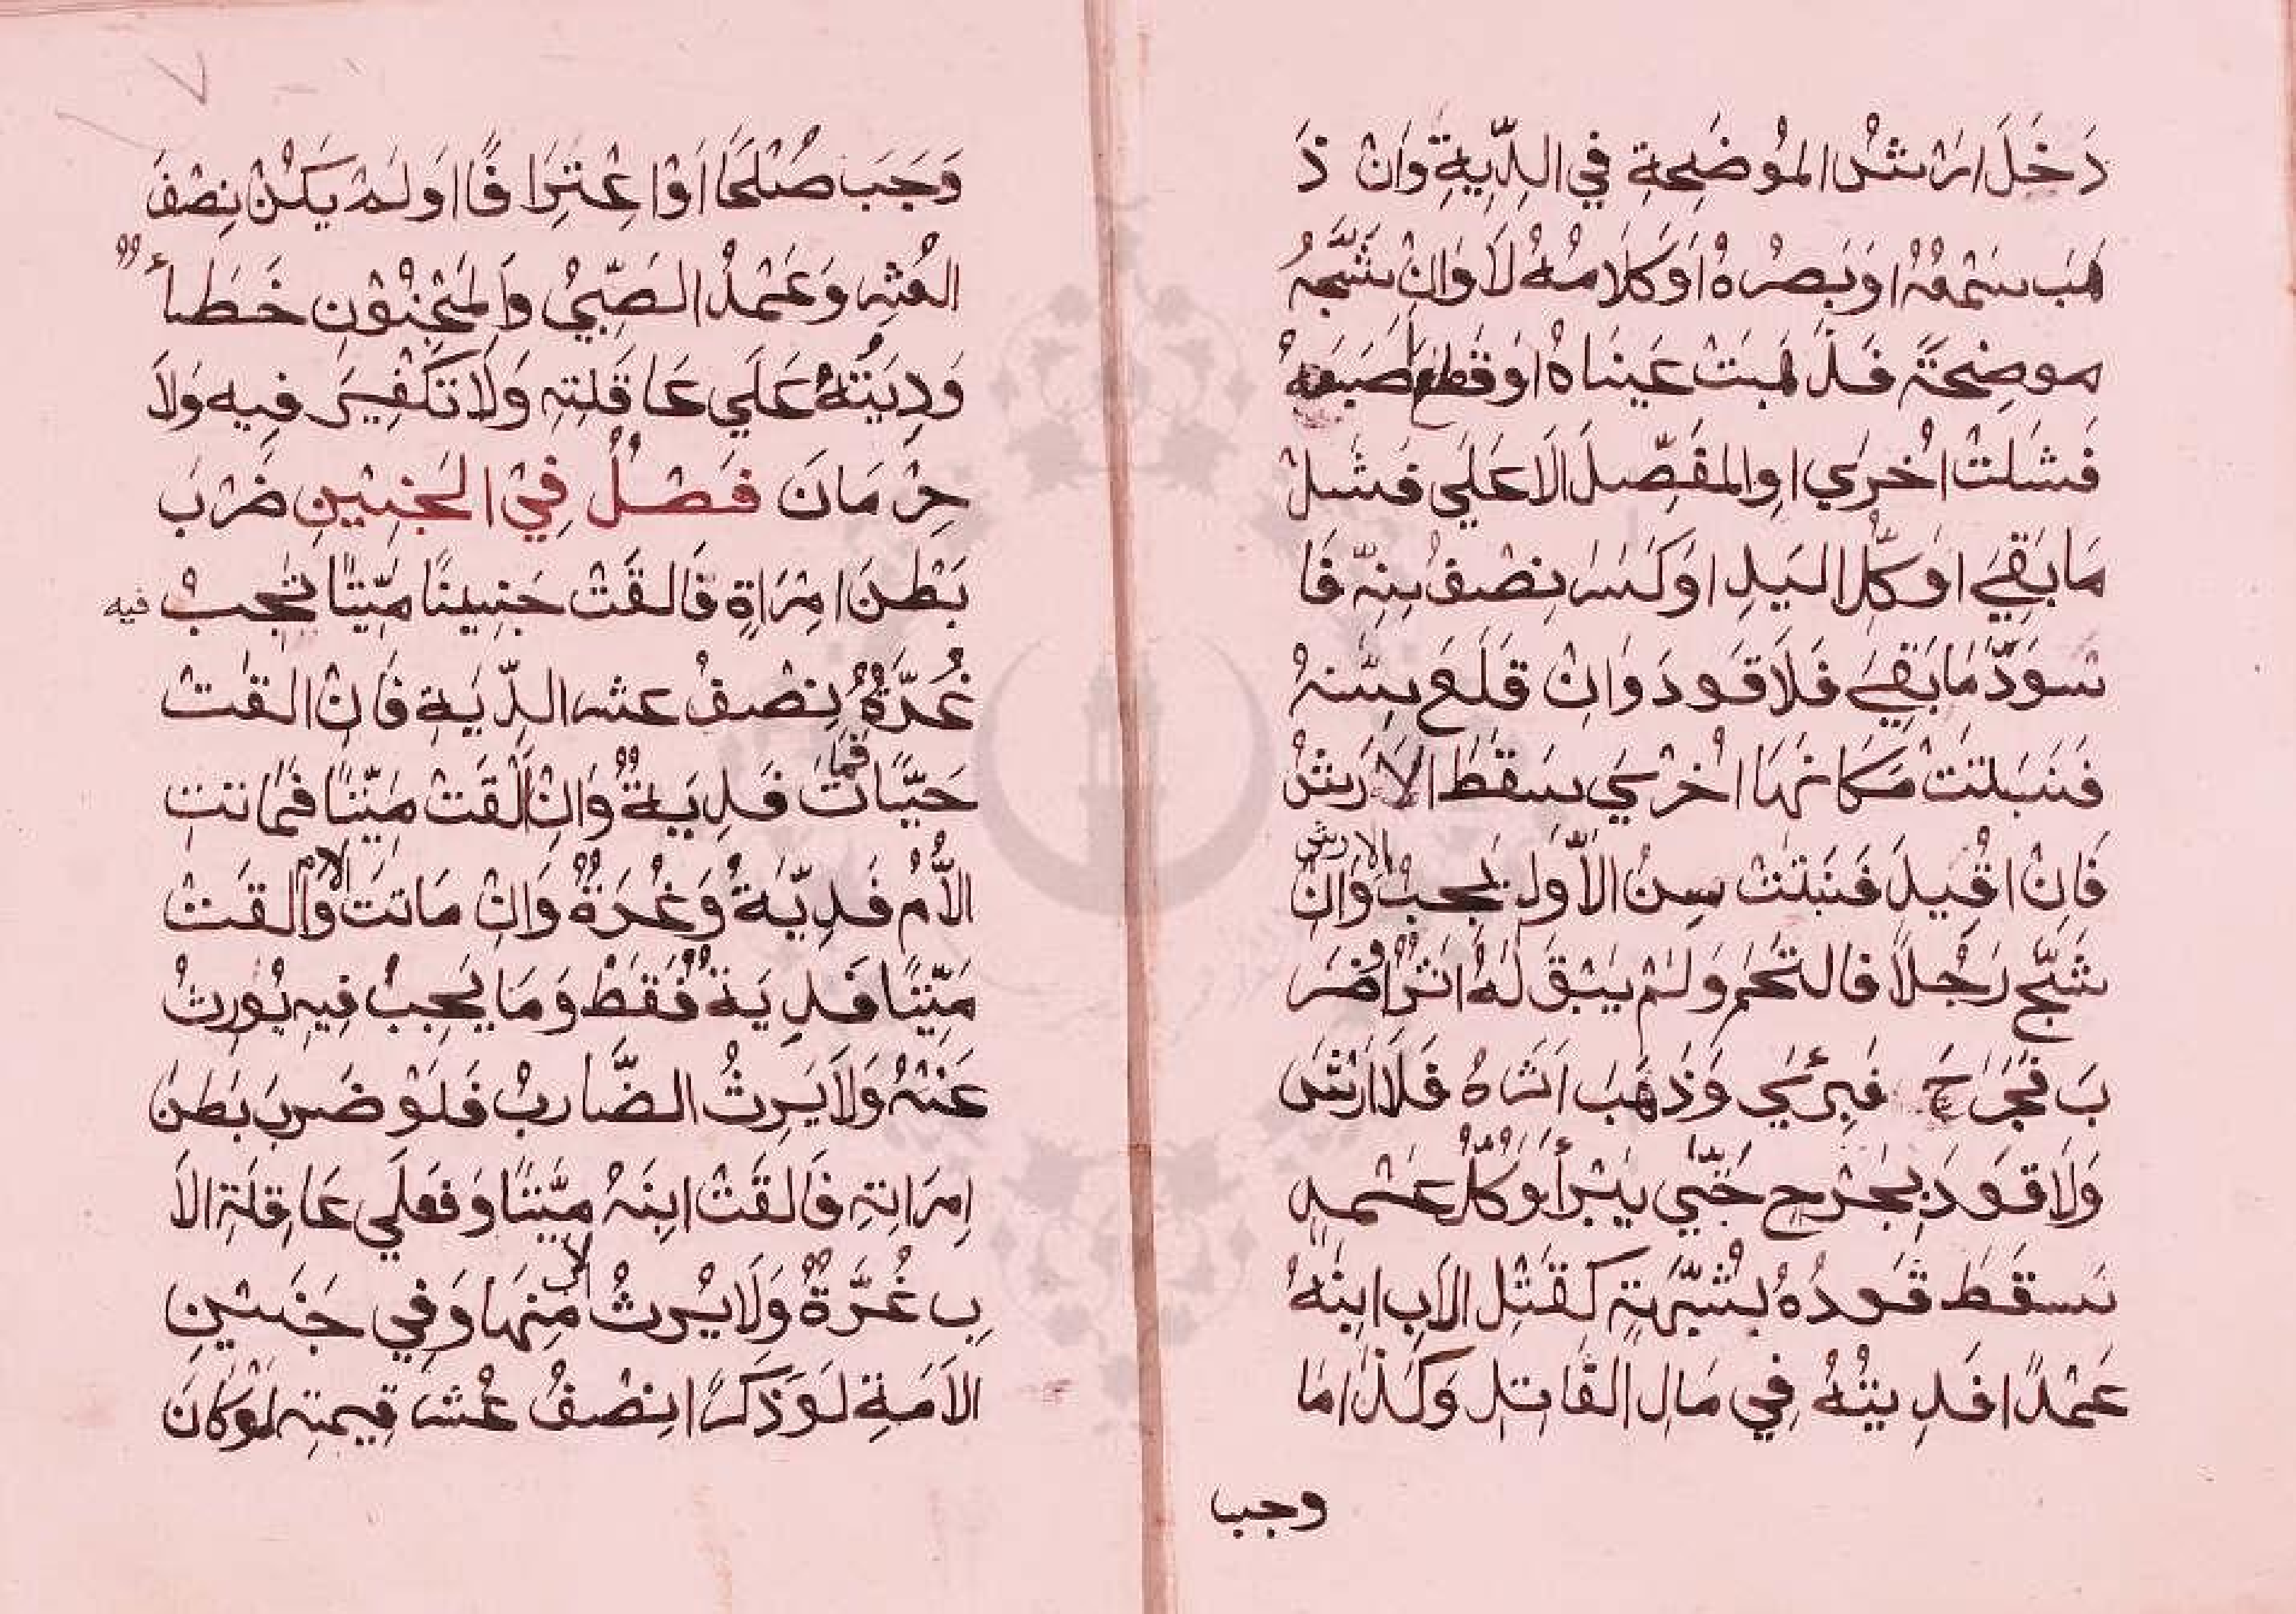 دَخَلَ اَرْشُ المُوضِحَةِ فِي الدِّيَةِ وَاِنْ ذَ
هَبَ سَمْعُهُ اَوْ بَصَرُهُ اَوْ كَلَامُهُ لَا وَاِنْ شَجَّهُ
موضِحَةً فَذَهَبَتْ عَيْنَاهُ اَوْ قَطَعَ اصْبَعَهُ
فَشَلَّتْ اُخْرَي اوِ المفصِّلَ الَاعَلَي فَشَلَّ
مَا بَقِيَ اَوْ كُلُّ اليَدِ اَوْ كَسَرَ نِصْفُ سِنِّهِ فَا
سْوَدَّ مَا بَقِيَ فَلَا قَوَدَ وَاِنْ قَلَعَ سِنَّهُ
فَنَبَتَتْ مَكَانَهَا اُخْرَي سَقَطَ الاَرْشُ
فَاِنْ اُقِيدَ فَنَبَتَتْ سِنُّ الاَوَّلِ يَجِبُ الارش وَاِنْ
شَجَّ رَجُلًا فَالتَحَمَ وَلَمْ يَبْقَ لَهُ اَثَرٌ اَوْ ضَرَ
بَ فَجَرَحَ فَبِرَئَ وَذَهَبَ اَثَرُهُ فَلَا اَرْشَ
وَلَا قَوَدَ بِجَرْحٍ حَتَّي يَبْرَأ وَكُلُّ عَمْدٍ
سَقَطَ قَوَدُهُ بِشُبْهَةٍ كَقَتْلِ الاَبِ ابنَهُ
عَمْدًا فَدِيَتُهُ فِي مَالِ القَاتِلِ وَكَذَا مَا
وجب
وَجَبَ صُلْحًا اَوْ اعْتِرَافًا اَوْ لَمْ يَكُنْ نِصْفَ
العُشْرِ وَعَمْدُ الصَّبِيِّ وَالمَجْنُوْنِ خَطَأٌ
وَدِيَتُهُ عَلَي عَاقِلَتِهِ وَلَا تَكْفِيرَ فِيهِ وَلَا
حِرْمَانَ فَصْلٌ فِي الجَنِيْنِ ضَرَبَ
بَطْنَ امْرَاَةٍ فَالقَتْ جَنِينًا مَيِّتًا تَجِبُ فيه
غُرَّةٌ نِصْفُ عشر الدِّيَةِ فَاِنْ القَتْ
حَيًّا فَمَاتَ فَدِيَةٌ وَاِنْ اَلْقَتْ مَيِّتًا فَمَاتَتِ
الاُمُّ فَدِيَةٌ وَغُرَّةٌ وَاِنْ مَاتَتِ الام وَالقَتْ
مَيِّتًا فَدِيَةٌ فَقَطْ وَمَا يَجِبُ فِيهِ يُورَثُ
عَنْهُ وَلَا يَرِثُ الضَّارِبُ فَلَوْ ضَرَبَ بَطْنَ
اِمْرَاَتِهِ فَالقَتْ ابنَهُ مَيِّتًا وَفَعَلَي عَاقِلَةِ الاَ
بِ غُرَّةٌ وَلَا يَرِثُ الاب مِنهَا وَفِي جَنِيْنِ
الاَمَةِ لَوْ ذَكَرًا نِصْفُ عُشْرِ قِيمَتِهِ لَوْ كَانَ